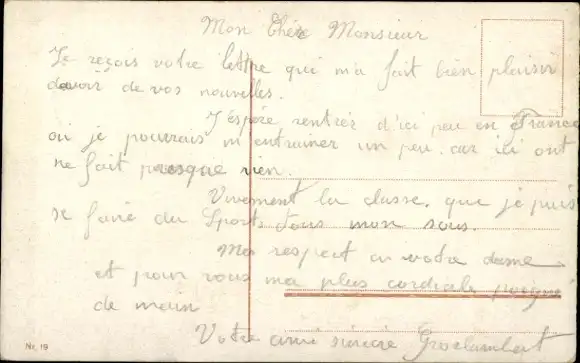 Mon Chère Monsieur
Je reçois votre lettre qui m'a fait bien plaisir
davoir de vos nouvelles.
J'éspère rentrer d'ici peu en France
où je pourrais m'entrainer un peu car ici ont
ne fait presque rien.
Vivement la classe, que je puis
se faire du Sports dans mon
Mes respect a votre dame
et pour vous ma plus cordiale poigné
de main
Votre ami sincère
Nr. 19